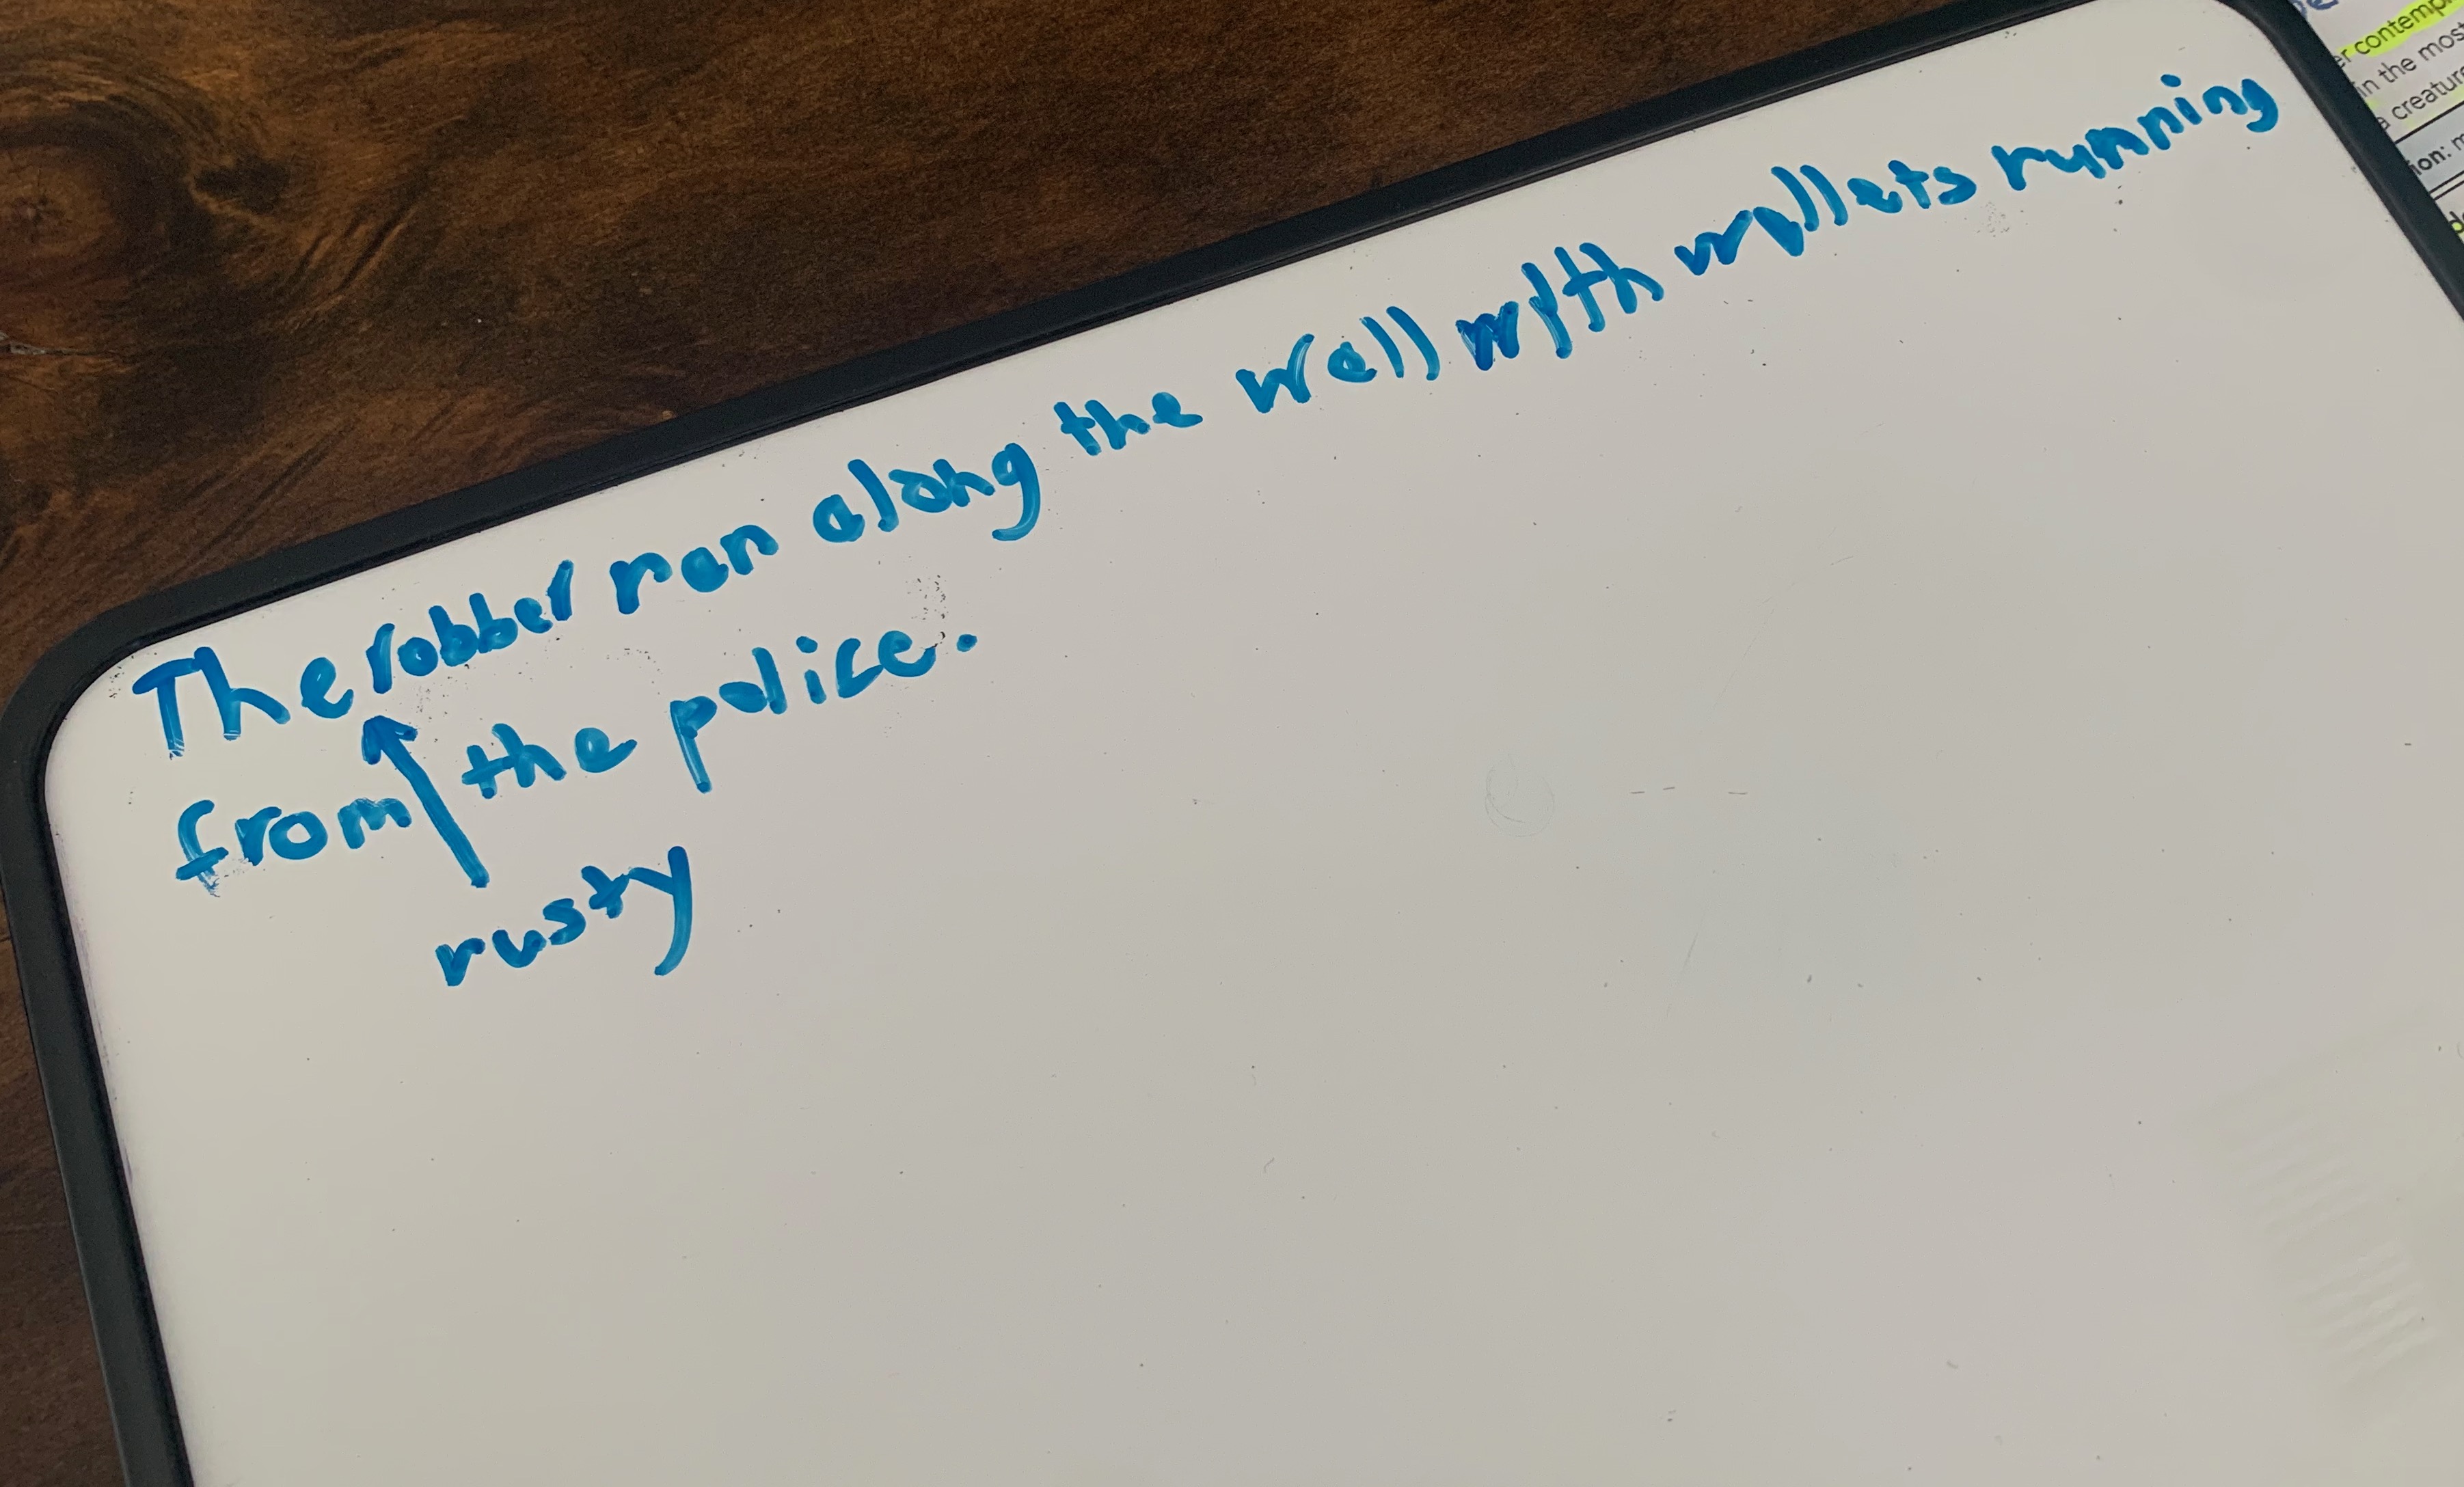 The robber ran along the well with wallets running
from the police.
rusty
contemp
in the most
a creature
ion: m